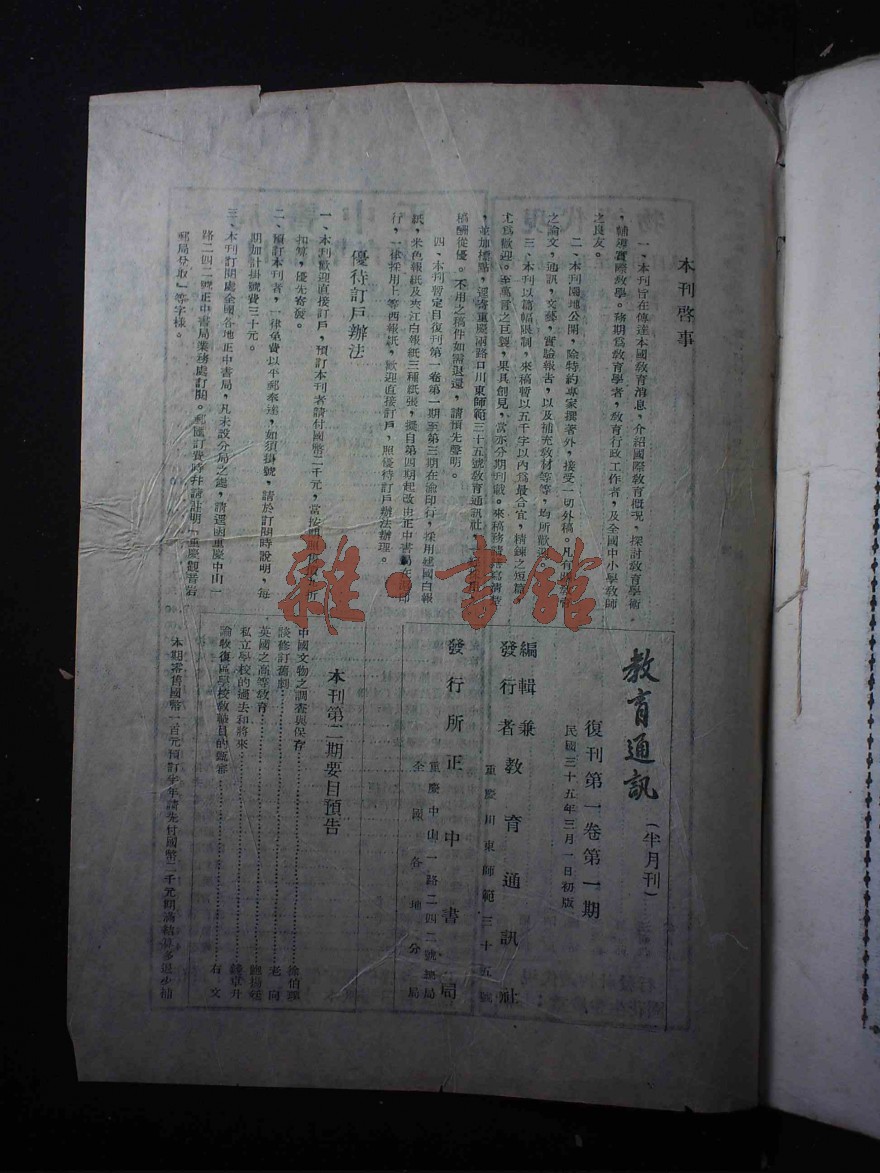 本刊啓事
一、本刊旨在傳達本國教育消息，介紹國際教育概況，探討教育學術
，輔導實際教學。務期爲教育學者，教育行政工作者，及全國中小學教師
之良友。
二、本刊園地公開，除特約專家撰著外，接受一切外稿。凡有關教育
之論文，通訊，文藝，實驗報告，以及補充教材等等，均所歡迎。
三、本刊以篇幅限制，來稿暫以五千字以內爲最合宜，精鍊之短篇
尤爲歡迎。至萬言之巨製，果具創見，當亦分期刊載。來稿務請繕寫清楚
，並加標點，逕寄重慶兩路口川東師範三十五號教育通訊社，
稿酬從優。不用之稿件如需退還，請預先聲明。
四、本刊暫定自復刊第一卷第一期至第三期在渝印行，採用建國白報
紙，米色報紙及夾江白報紙三種紙張，擬自第四期起改由正中書局在 印
行，一律採用上等西報紙，歡迎直接訂戶，照優待訂戶辦法辦理。
優待訂戶辦法
一、本刊歡迎直接訂戶，預訂本刊者請付國幣二千元，當按期照 價九折
扣算，優先寄發。
二、預訂本刊者，一律免費以平郵奉遞，如須掛號，請於訂閱時說明，每
期加計掛號費三十元。
三、本刊訂閱處全國各地正中書局，凡未設分局之處，請逕函重慶中山一
路二四二號正中書局業務處訂閱。郵匯訂費時幷請註明「重慶觀音岩
郵局兌取」等字樣。
教育通訊
（半月刊）
復刊第一卷第一期
民國三十五年三月一日初版
編輯兼
發行者 教育通訊社
重慶川東師範三十五號
發行所 正中書局
重慶中山一路二四二號總局
全國各地分局
本刊第二期要目預告
中國文物之調查與保存……徐伯璞
談修訂舊劇……老向
英國之高等教育……
私立學校的過去和將來……
論收復區學校教職員的甄審……有文
本期零售國幣一百元預訂半年請先付國幣二千元期滿結算多退少補
雜·書館